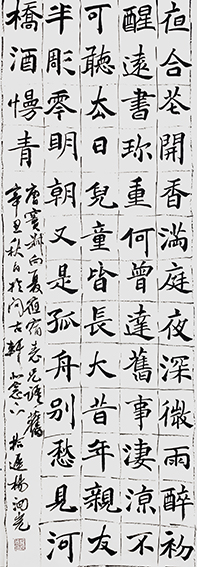 亱合花開香滿庭夜深微雨醉初
醒遠書珎重何曾達舊事淒涼不
可聽去日兒童皆長大昔年親友
半彫零明朝又是孤舟別愁見河
橋酒幔青
唐竇叔向夏夜宿表兄話舊
辛丑秋日於問古軒